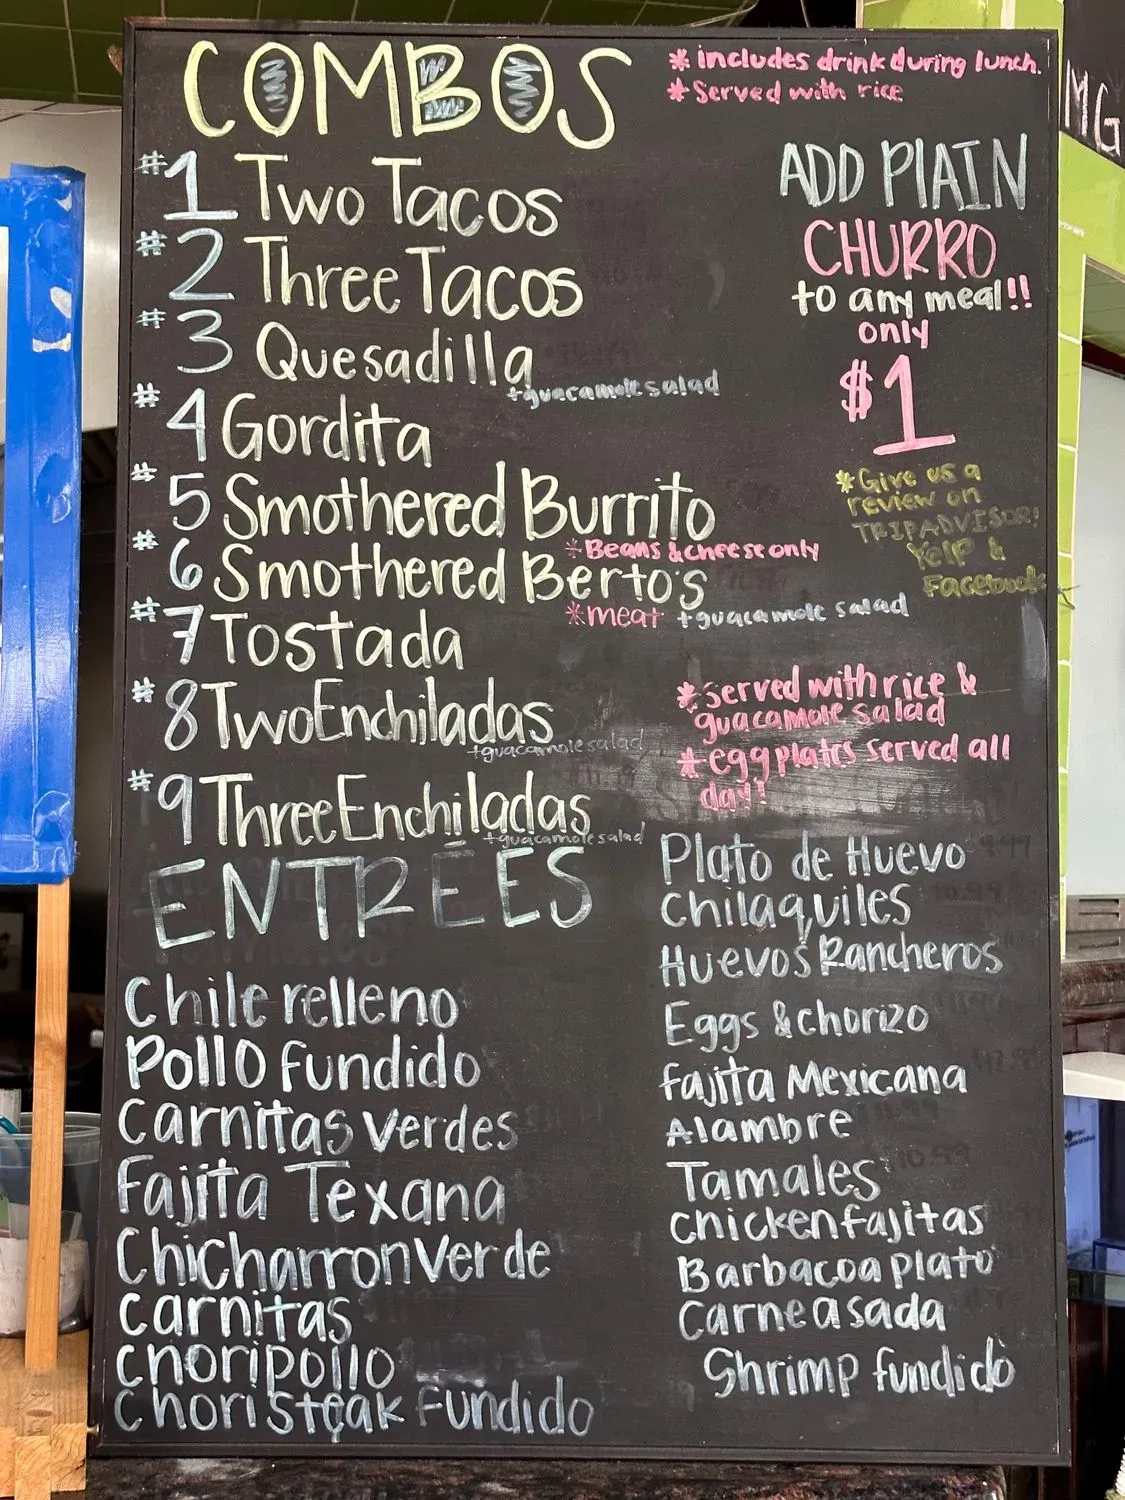 COMBOS
* includes drink during lunch.
* Served with rice
#1 Two Tacos
#2 Three Tacos
#3 Quesadilla
+guacamole salad
#4 Gordita
#5 Smothered Burrito
* Beans & cheese only
#6 Smothered Berto's
* meat +guacamole salad
#7 Tostada
#8 Two Enchiladas
+guacamole salad
#9 Three Enchiladas
+guacamole salad
ADD PLAIN
CHURRO
to any meal!!
only
$1
* Give us a
review on
TRIPADVISOR!
Yelp &
Facebook
* Served with rice &
guacamole salad
* egg plates served all
day!
ENTRÉES
Chile relleno
Pollo fundido
Carnitas verdes
Fajita Texana
Chicharron Verde
carnitas
choripollo
choristeak Fundido
Plato de Huevo
Chilaquiles
Huevos Rancheros
Eggs & chorizo
fajita Mexicana
Alambre
Tamales
chicken fajitas
Barbacoa plato
Carne asada
Shrimp fundido
MG